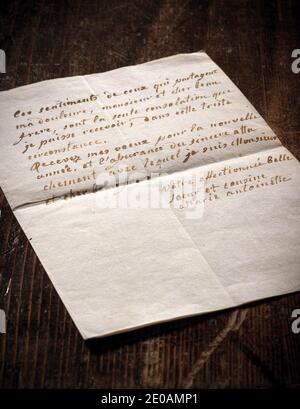 Les sentiments de ceux qui partagent
ma douleure, monsieur et cher beau
frere, sont la seule consolation que
je puisse recevoir, dans cette triste
circonstance.
Recevez mes voeux pour la nouvelle
année, et l'assurance du sincere atta-
chement avec lequel je suis Monsieur
et cher
Votre affectionnée Belle
soeur et cousine
marie antoinette
alamy
alamy
Image ID: 2E0AMP1
www.alamy.com